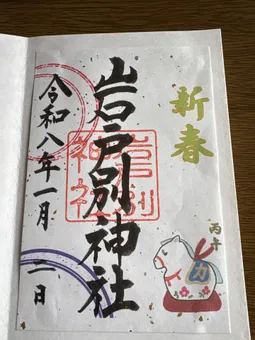 新春
山岩戸別神社
令和八年一月二日
丙午
力
岩戸別
神社